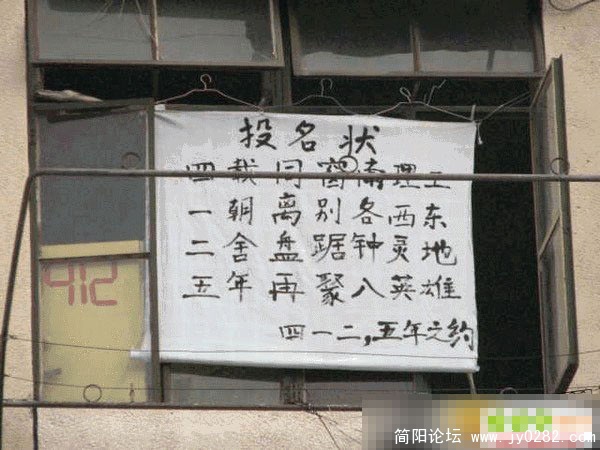 投名状
四载同窗南理工
一朝离别各西东
二舍盘踞钟灵地
五年再聚八英雄
四一二,五年之约
412
简阳论坛 www.jy0282.com